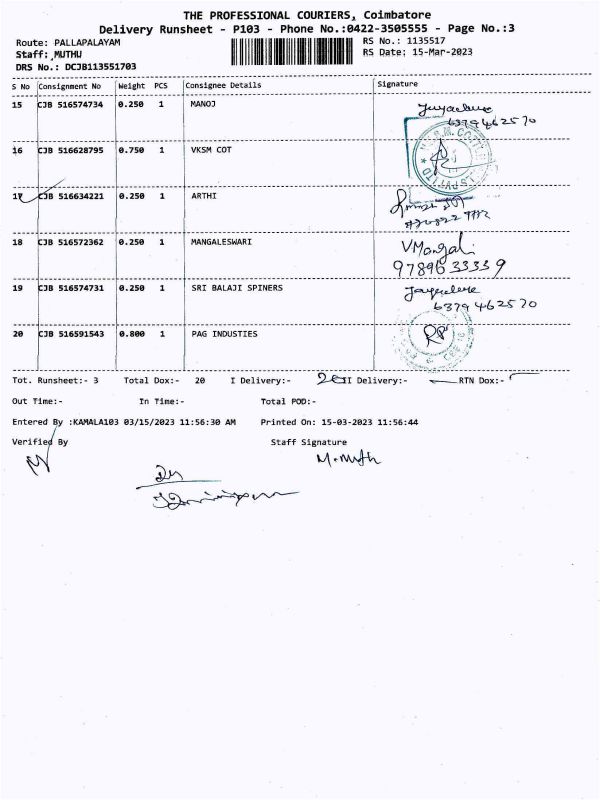 THE PROFESSIONAL COURIERS, Coimbatore
Delivery Runsheet - P103 - Phone No.:0422-3505555 - Page No.:3
Route: PALLAPALAYAM RS No.: 1135517
Staff: MUTHU RS Date: 15-Mar-2023
DRS No.: DCJB113551703
S No Consignment No Weight PCS Consignee Details Signature
15 CJB 516574734 0.250 1 MANOJ
6379462570
16 CJB 516628795 0.750 1 VKSM COT
17 CJB 516634221 0.250 1 ARTHI
18 CJB 516572362 0.250 1 MANGALESWARI VMangali
9789633339
19 CJB 516574731 0.250 1 SRI BALAJI SPINERS
6379462570
20 CJB 516591543 0.800 1 PAG INDUSTIES RP
Tot. Runsheet:- 3 Total Dox:- 20 I Delivery:- 20 II Delivery:- RTN Dox:-
Out Time:- In Time:- Total POD:-
Entered By :KAMALA103 03/15/2023 11:56:30 AM Printed On: 15-03-2023 11:56:44
Verified By Staff Signature
M. Muth